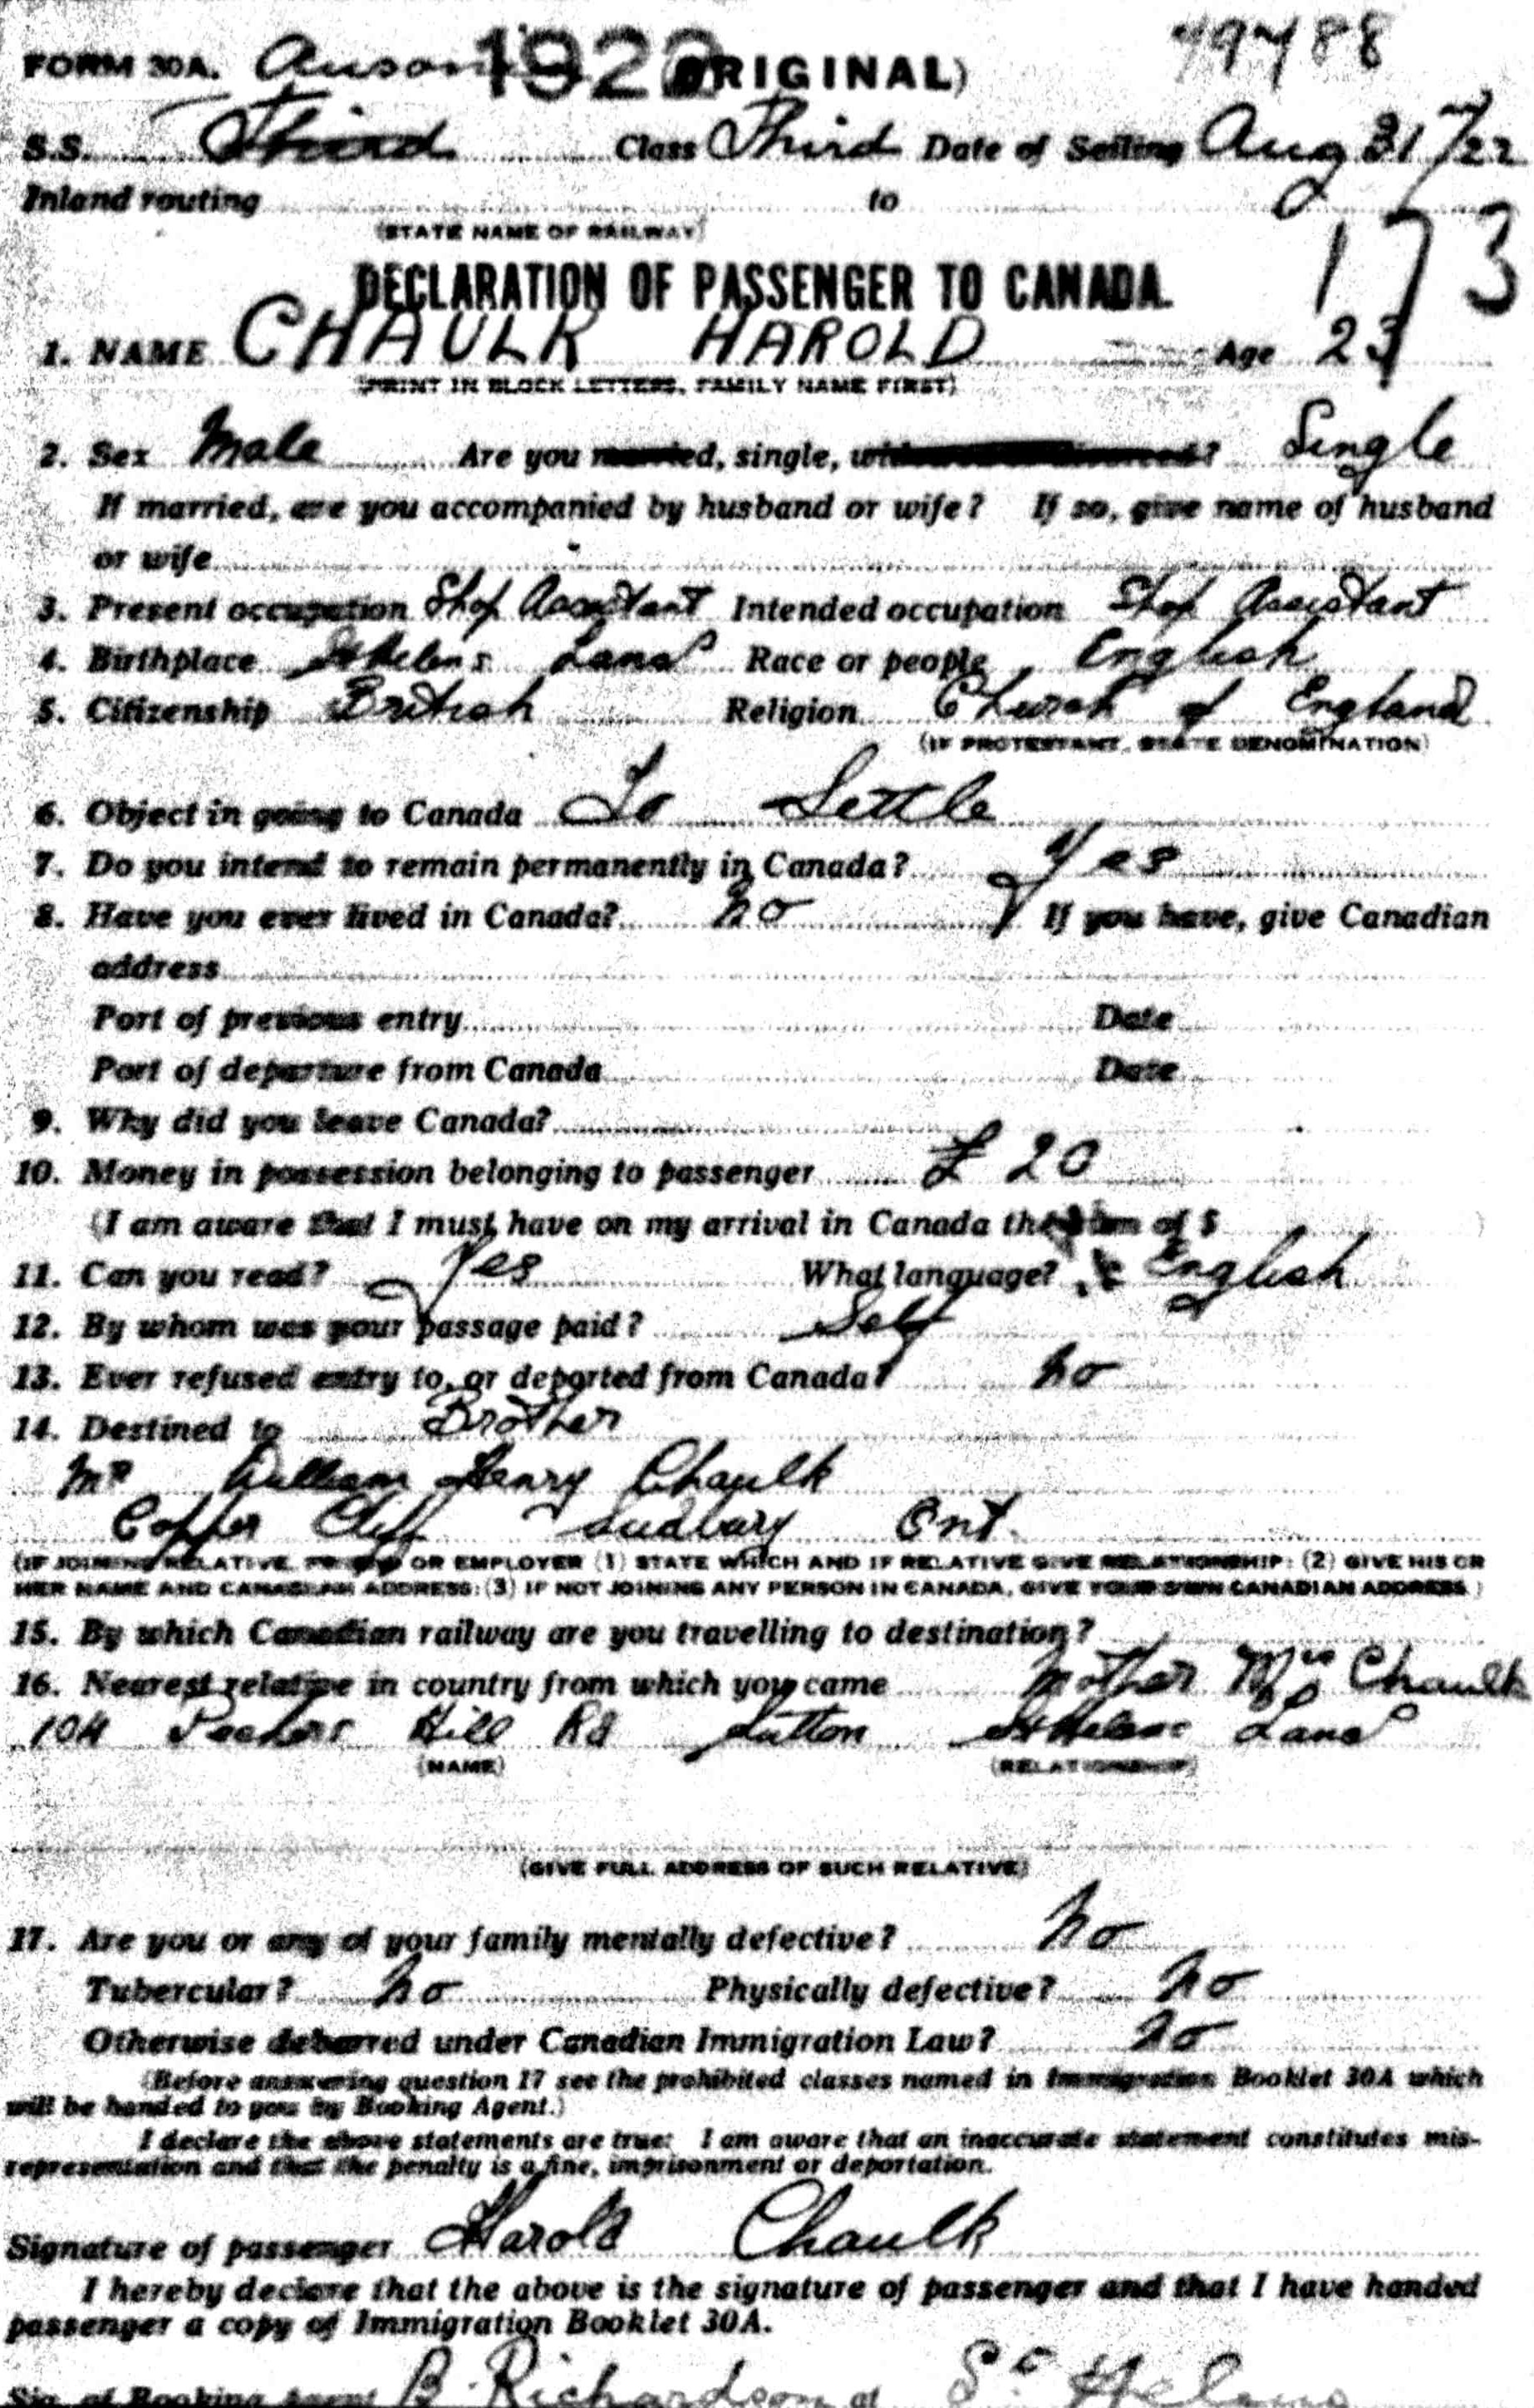 79488
FORM 30A. Ausonia 1922 (ORIGINAL)
S.S. Third Class Third Date of Sailing Aug 31/22
Inland routing to
(STATE NAME OF RAILWAY)
173
DECLARATION OF PASSENGER TO CANADA.
1. NAME CHAULK HAROLD Age 23
(PRINT IN BLOCK LETTERS, FAMILY NAME FIRST)
2. Sex Male Are you married, single, ? Single
If married, are you accompanied by husband or wife? If so, give name of husband
or wife
3. Present occupation Shop Assistant Intended occupation Shop Assistant
4. Birthplace St Helens Lancs Race or people English
5. Citizenship British Religion Church of England
(IF PROTESTANT, STATE DENOMINATION)
6. Object in going to Canada To Settle
7. Do you intend to remain permanently in Canada? Yes
8. Have you ever lived in Canada? No If you have, give Canadian
address
Port of previous entry Date
Port of departure from Canada Date
9. Why did you leave Canada?
10. Money in possession belonging to passenger £ 20
(I am aware that I must have on my arrival in Canada the sum of $ )
11. Can you read? Yes What language? English
12. By whom was your passage paid? Self
13. Ever refused entry to, or deported from Canada? No
14. Destined to Brother
Mr William Henry Chaulk
Copper Cliff Sudbury Ont.
(IF JOINING RELATIVE, FRIEND OR EMPLOYER (1) STATE WHICH AND IF RELATIVE GIVE RELATIONSHIP; (2) GIVE HIS OR
HER NAME AND CANADIAN ADDRESS; (3) IF NOT JOINING ANY PERSON IN CANADA, GIVE YOUR OWN CANADIAN ADDRESS.)
15. By which Canadian railway are you travelling to destination?
16. Nearest relative in country from which you came Mother Mrs Chaulk
104 Peckers Hill Rd Sutton St Helens Lancs
(NAME) (RELATIONSHIP)
(GIVE FULL ADDRESS OF SUCH RELATIVE)
17. Are you or any of your family mentally defective? No
Tubercular? No Physically defective? No
Otherwise debarred under Canadian Immigration Law? No
(Before answering question 17 see the prohibited classes named in Immigration Booklet 30A which
will be handed to you by Booking Agent.)
I declare the above statements are true: I am aware that an inaccurate statement constitutes mis-
representation and that the penalty is a fine, imprisonment or deportation.
Signature of passenger Harold Chaulk
I hereby declare that the above is the signature of passenger and that I have handed
passenger a copy of Immigration Booklet 30A.
Sig. of Booking Agent B. Richardson at St Helens